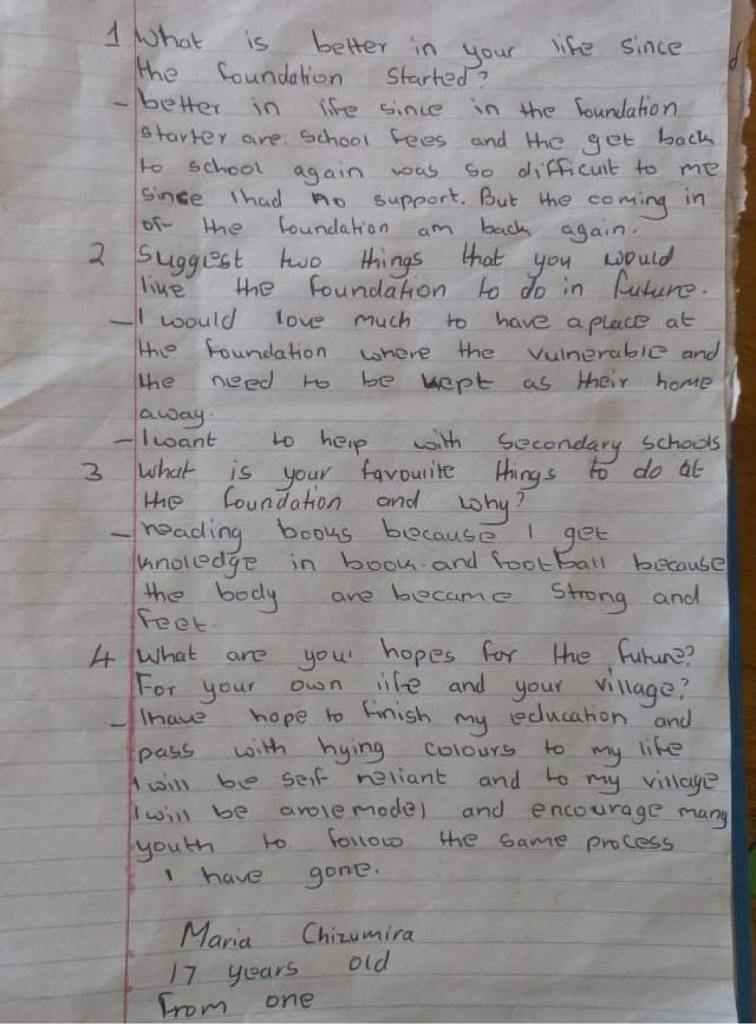 1 What is better in your life since
the foundation started?
- better in life since in the foundation
starter are: school fees and the get back
to school again was so difficult to me
since I had no support. But the coming in
of the foundation am back again.
2 Suggest two things that you would
like the foundation to do in future.
- I would love much to have a place at
the foundation where the vulnerable and
the need to be kept as their home
away.
- I want to help with secondary schools
3 What is your favourite things to do at
the foundation and why?
- reading books because I get
knoledge in book. and football because
the body are became strong and
feet.
4 What are your hopes for the future?
For your own life and your village?
- I have hope to finish my education and
pass with hying colours to my life
I will be self reliant and to my village
I will be arolemodel and encourage many
youth to follow the same process
I have gone.
Maria Chizumira
17 years old
From one